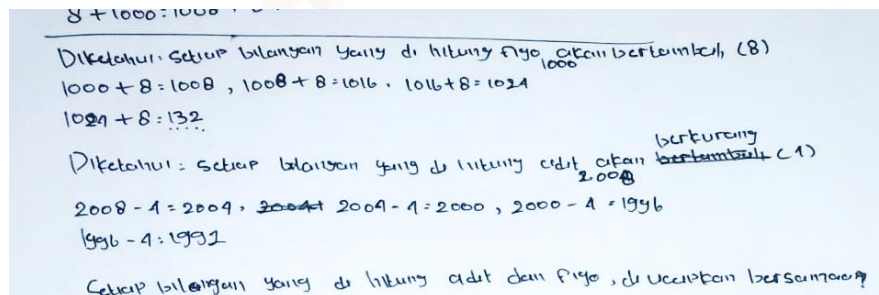 8 + 1000 : 1008
Diketahui. Setiap bilangan yang di hitung Figo 1000 akan bertambah (8)
1000 + 8 = 1008 , 1008 + 8 = 1016 . 1016 + 8 = 1024
1024 + 8 : 132
Diketahui : setiap bilangan yang di hitung adit 2008 akan berkurang bertambah (4)
2008 - 4 = 2004, 2004 2004 - 4 = 2000 , 2000 - 4 = 1996
1996 - 4 : 1992
Setiap bilangan yang di hitung adit dan Figo , di ucapkan bersamaan